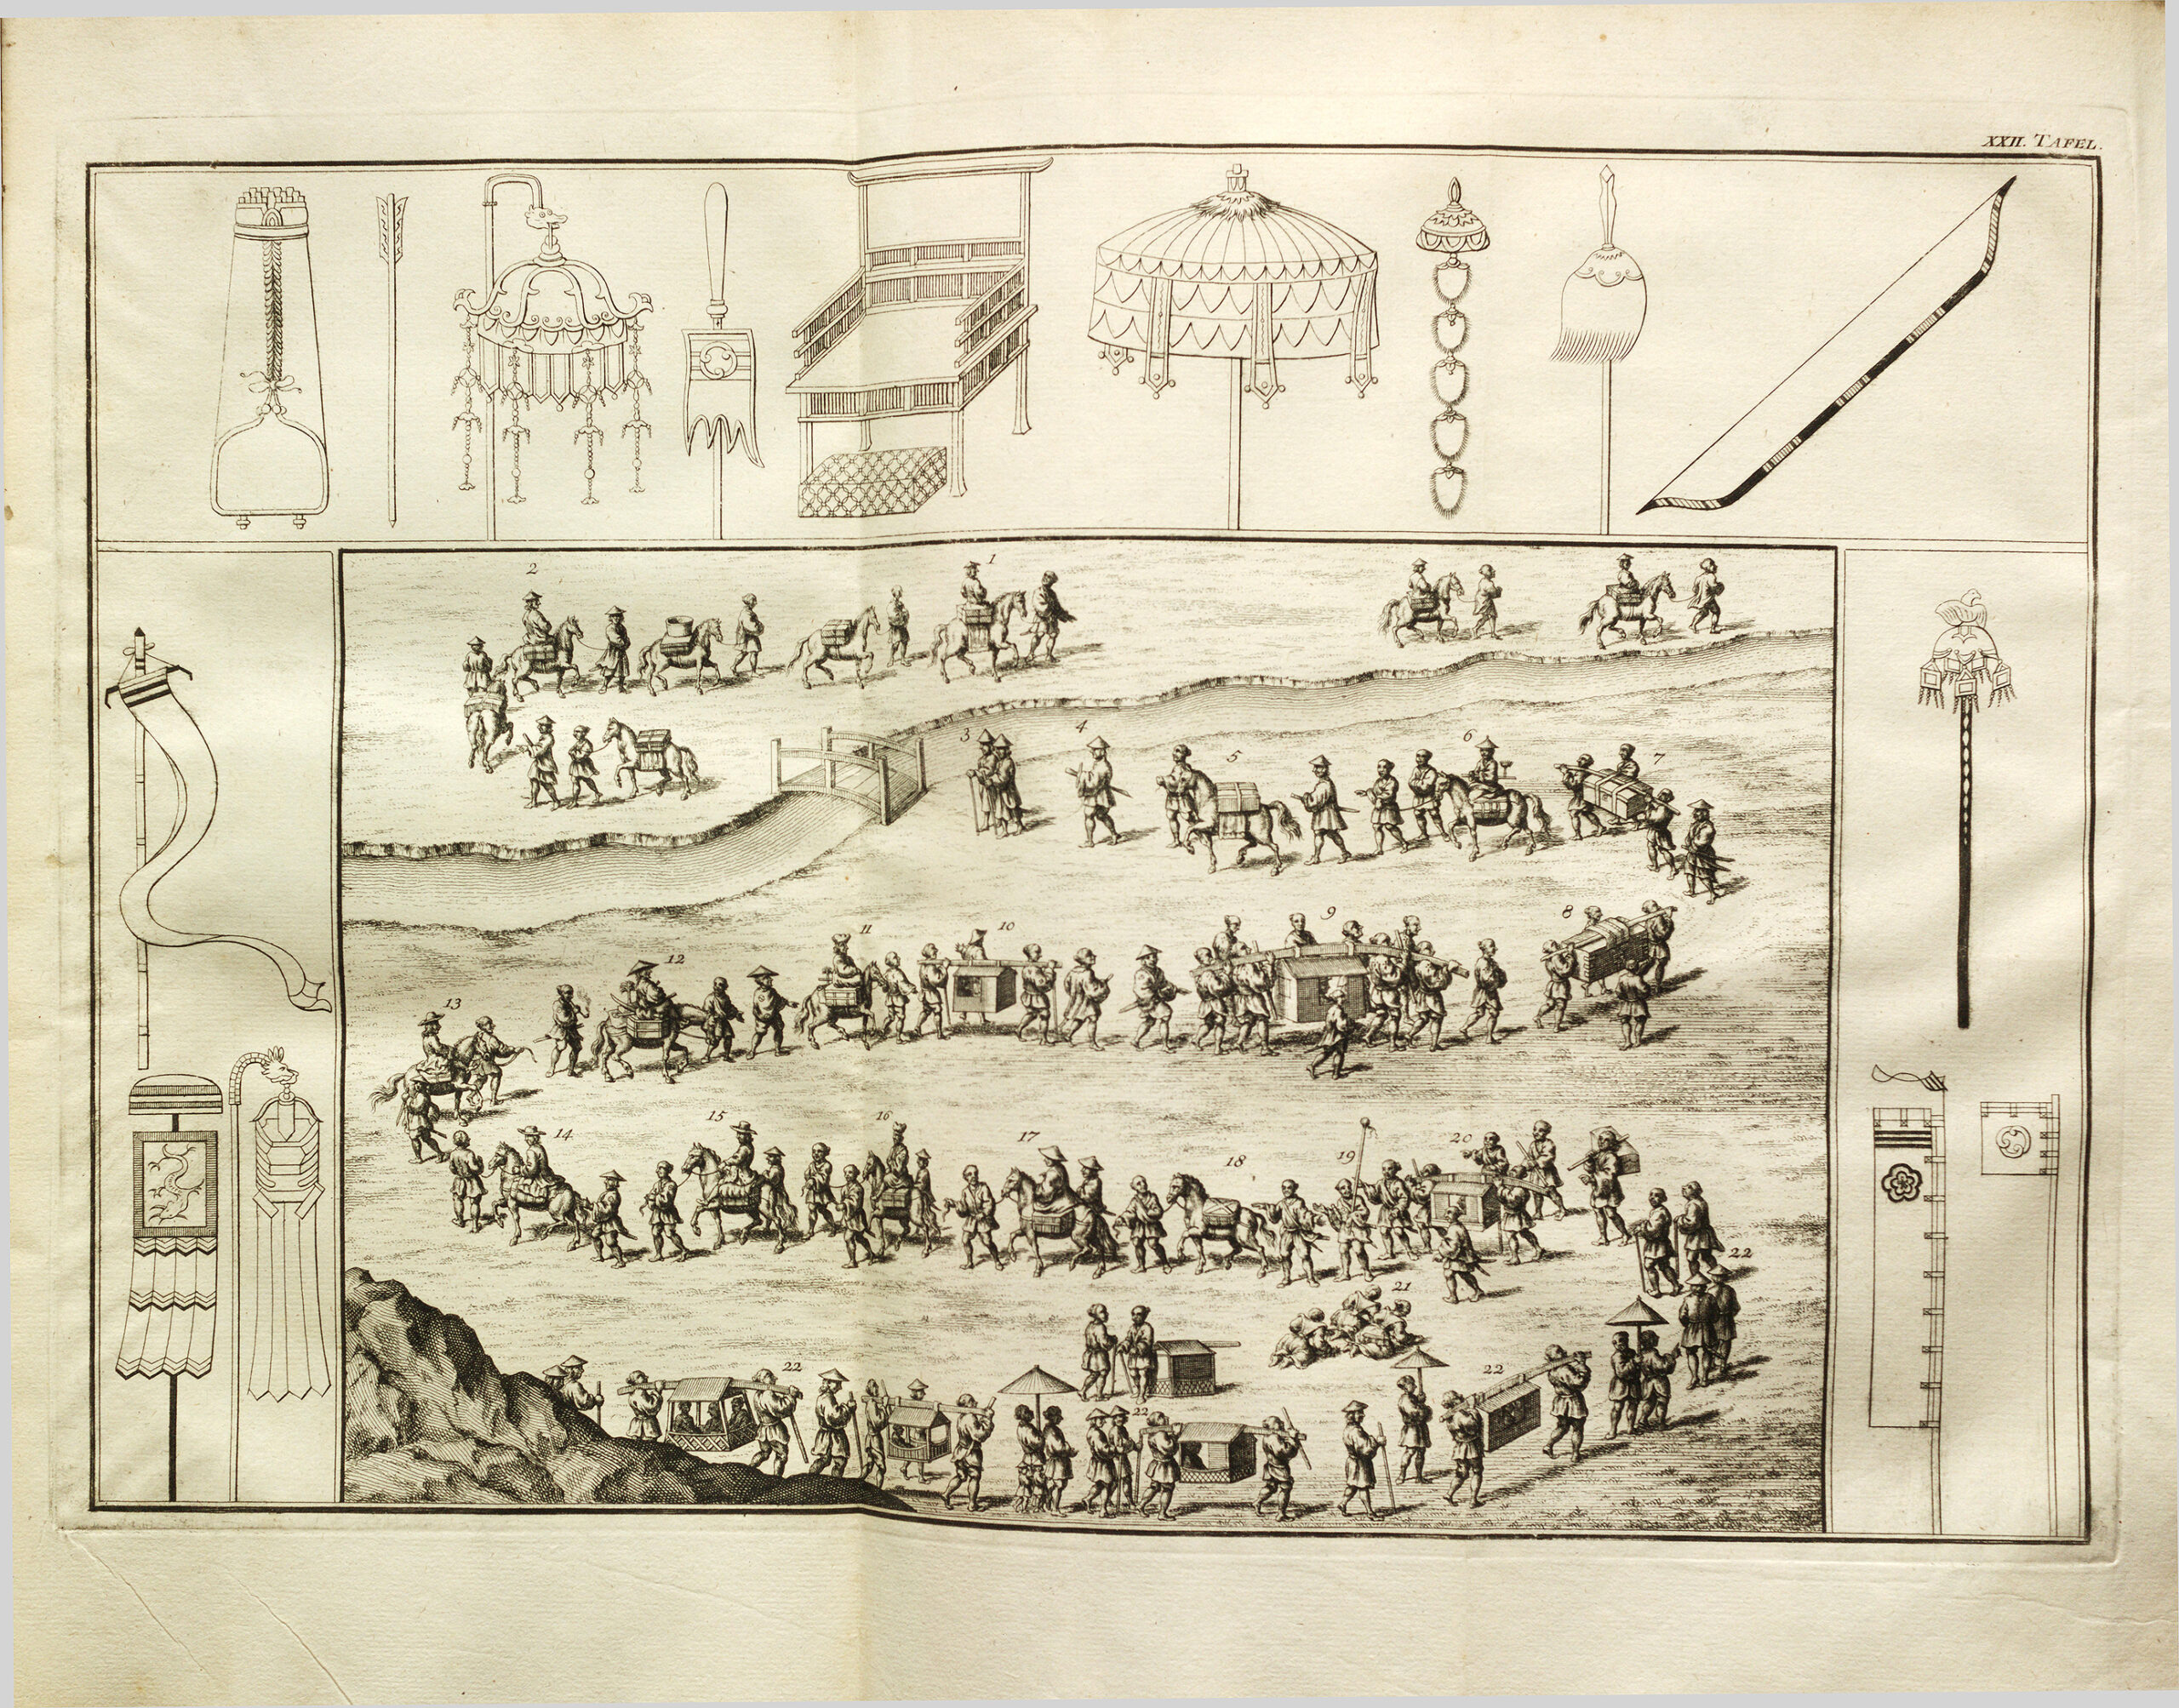 XXII. TAFEL.
2 1
3 4 5 6 7
8 9 10 11 12 13
14 15 16 17 18 19 20
21 22
22 22
22